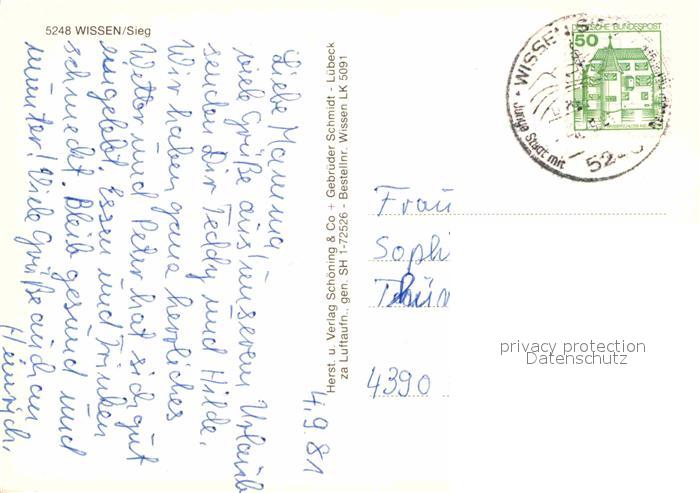 5248 WISSEN/Sieg
4.9.81
Liebe Mamma!
viele Grüße aus unserem Urlaub
senden Dir Teddy und Hilde.
Wir haben ganz herrliches
Wetter und Peter hat sich gut
eingelebt. Essen und Trinken
schmeckt. Bleib gesund und
munter! Viele Grüße auch an
Heinrich.
Herst. u. Verlag Schöning & Co + Gebrüder Schmidt - Lübeck
za Luftaufn., gen. SH 1-72526 - Bestellnr. Wissen LK 5091
DEUTSCHE BUNDESPOST
50
WISSEN
Junge Stadt mit
Frau
Soph
Thün
4390
privacy protection
Datenschutz